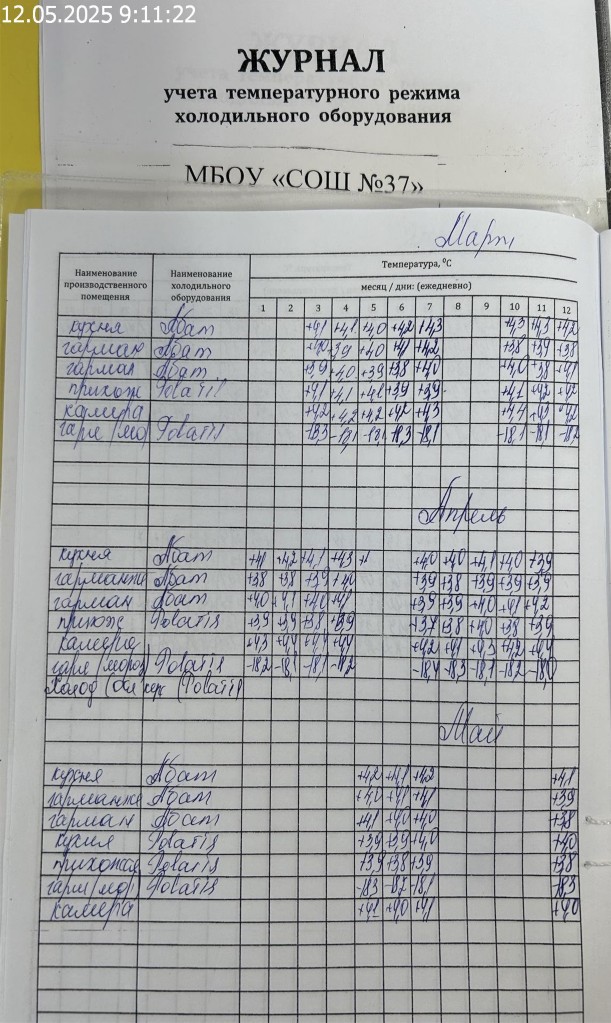 12.05.2025 9:11:22
ЖУРНАЛ
учета температурного режима
холодильного оборудования
МБОУ «СОШ №37»
Март
Наименование производственного помещения
Наименование холодильного оборудования
Температура, ⁰С
месяц / дни: (ежедневно)
1 2 3 4 5 6 7 8 9 10 11 12
кухня Абат +4,1 +4,1 +4,0 +4,2 +4,3 +4,3 +4,3 +4,2
Абат +3,9 +4,0 +4,1 +4,2 +3,8 +3,9 +3,8
Абат +3,9 +4,0 +3,9 +3,8 +4,0 +4,0 +3,8 +4,1
прихож Polaris +4,1 +4,1 +3,9 +3,9 +4,1 +4,2 +4,2
камера +4,2 +4,2 +4,2 +4,2 +4,3 +4,4 +4,2
гарм (мо) Polaris -18,1 -18,1 -18,1 -18,2
Апрель
кухня Абат +4,1 +4,2 +4,1 +4,3 +4,0 +4,0 +4,1 +4,0 +3,9
Абат +3,8 +3,8 +3,9 +4,0 +3,9 +3,8 +3,9 +3,9 +3,9
гарман Абат +4,0 +4,1 +4,0 +4,1 +3,9 +3,9 +4,0 +4,1 +4,2
прихож Polaris +3,9 +3,9 +3,8 +3,9 +3,7 +3,8 +4,0 +3,8 +3,9
камера +4,3 +4,4 +4,1 +4,4 +4,2 +4,1 +4,3 +4,2 +4,4
гарм (мороз) Polaris -18,2 -18,1 -18,1 -18,2 -18,4 -18,3 -18,1 -18,2 -18,0
Холод (Polaris)
Май
кухня Абат +4,2 +4,1 +4,2 +4,1
Абат +4,0 +4,1 +4,1 +3,9
гарман Абат +4,1 +4,0 +4,0 +3,8
кухня Polaris +3,9 +3,9 +4,0 +4,0
прихожая Polaris +3,9 +3,8 +3,9 +3,8
гарм (мо) Polaris -18,3 -18,1 -18,3
камера +4,1 +4,0 +4,1 +4,0